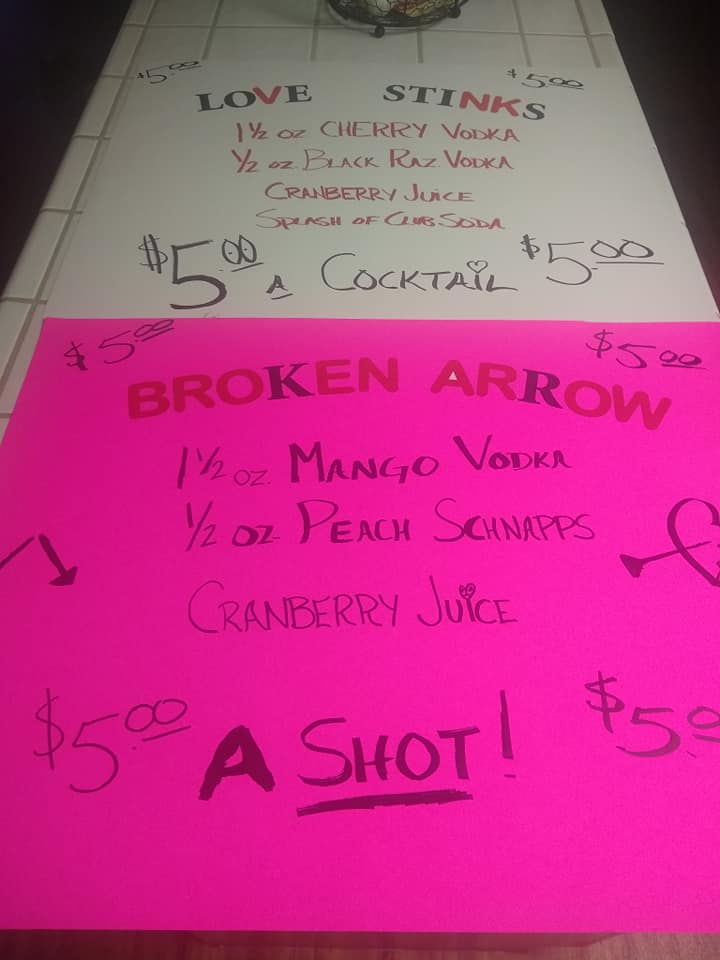 $5.00 $5.00
LOVE STINKS
1 1/2 oz CHERRY VODKA
1/2 oz. BLACK RAZ VODKA
CRANBERRY JUICE
SPLASH OF CLUB SODA
$5.00 A COCKTAIL $5.00
$5.00 $5.00
BROKEN ARROW
1 1/2 oz. MANGO VODKA
1/2 oz PEACH SCHNAPPS
CRANBERRY JUICE
$5.00 A SHOT! $5.0